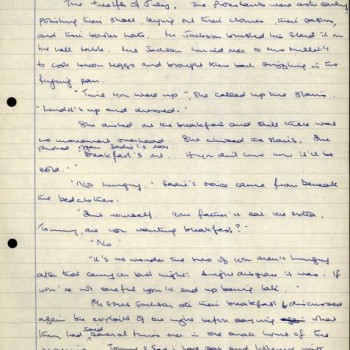 The twelfth of July. The Protestants were astir early
polishing their shoes, laying out their clothes, their sashes,
and their bowler hats. Mr Jackson brushed his
the hall table. Mrs Jackson hurried
to cook bacon eggs and brought them back sizzling in the
frying pan.
"Time you were up", she called up the stairs.
"Linda's up and dressed."
She dished out the breakfast and still there was
no movement overhead. She climbed the stairs. She
pushed open Sadie's door.
"Breakfast's out. If you don't come now it'll be
cold."
"Not hungry." Sadie's voice came from beneath
the bedclothes.
"Suit yourself. Your father'll eat the extra.
Tommy, are you wanting breakfast?"
"No."
"It's no wonder the two of you aren't hungry
after that carry on last night. A right disgrace it was. If
you're not careful you'll end up being late."
Mr & Mrs Jackson ate their breakfast & discussed
again the exploits of the night before saying again what
they had said several times over in the small hours of the
Tommy & Sadie had sat and listened with